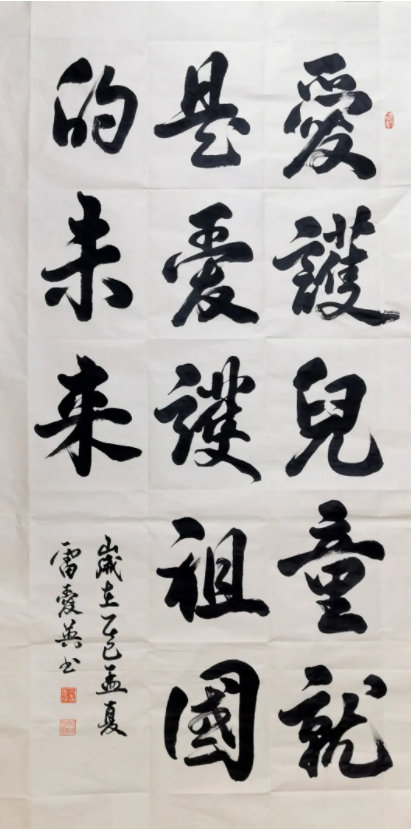 愛護兒童就
是愛護祖國
的未来
歲在乙巳孟夏
雷愛英书